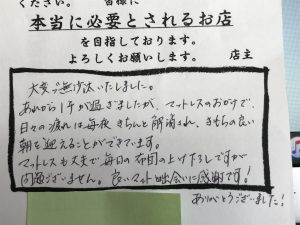 ください。 皆様に
本当に必要とされるお店
を目指しております。
よろしくお願いします。 店主
大変ご無沙汰いたしました。
あれから1年が過ぎましたが、マットレスのおかげで、
日々の疲れは毎夜きちんと解消され、きもちの良い
朝を迎えることができています。
マットレスも丈夫で毎日の布団の上げ下ろしですが
問題ございません。良いマット出会いに感謝です!
ありがとうございました!